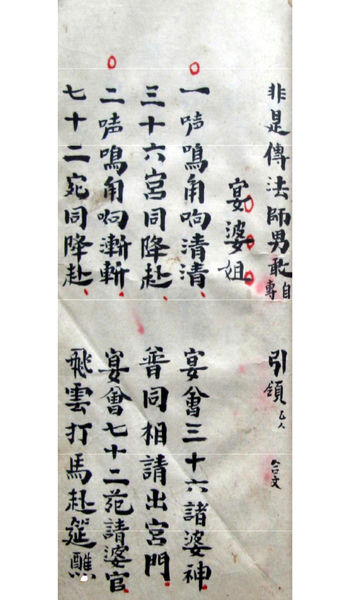 非是傳法師男敢自專 引領
宴婆姐
一声鳴角响清清 宴會三十六諸婆神
三十六宮同降赴 普同相請出宮門
二声鳴角响漸漸 宴會七十二苑請婆官
七十二宛同降赴 飛雲打馬赴筵醮